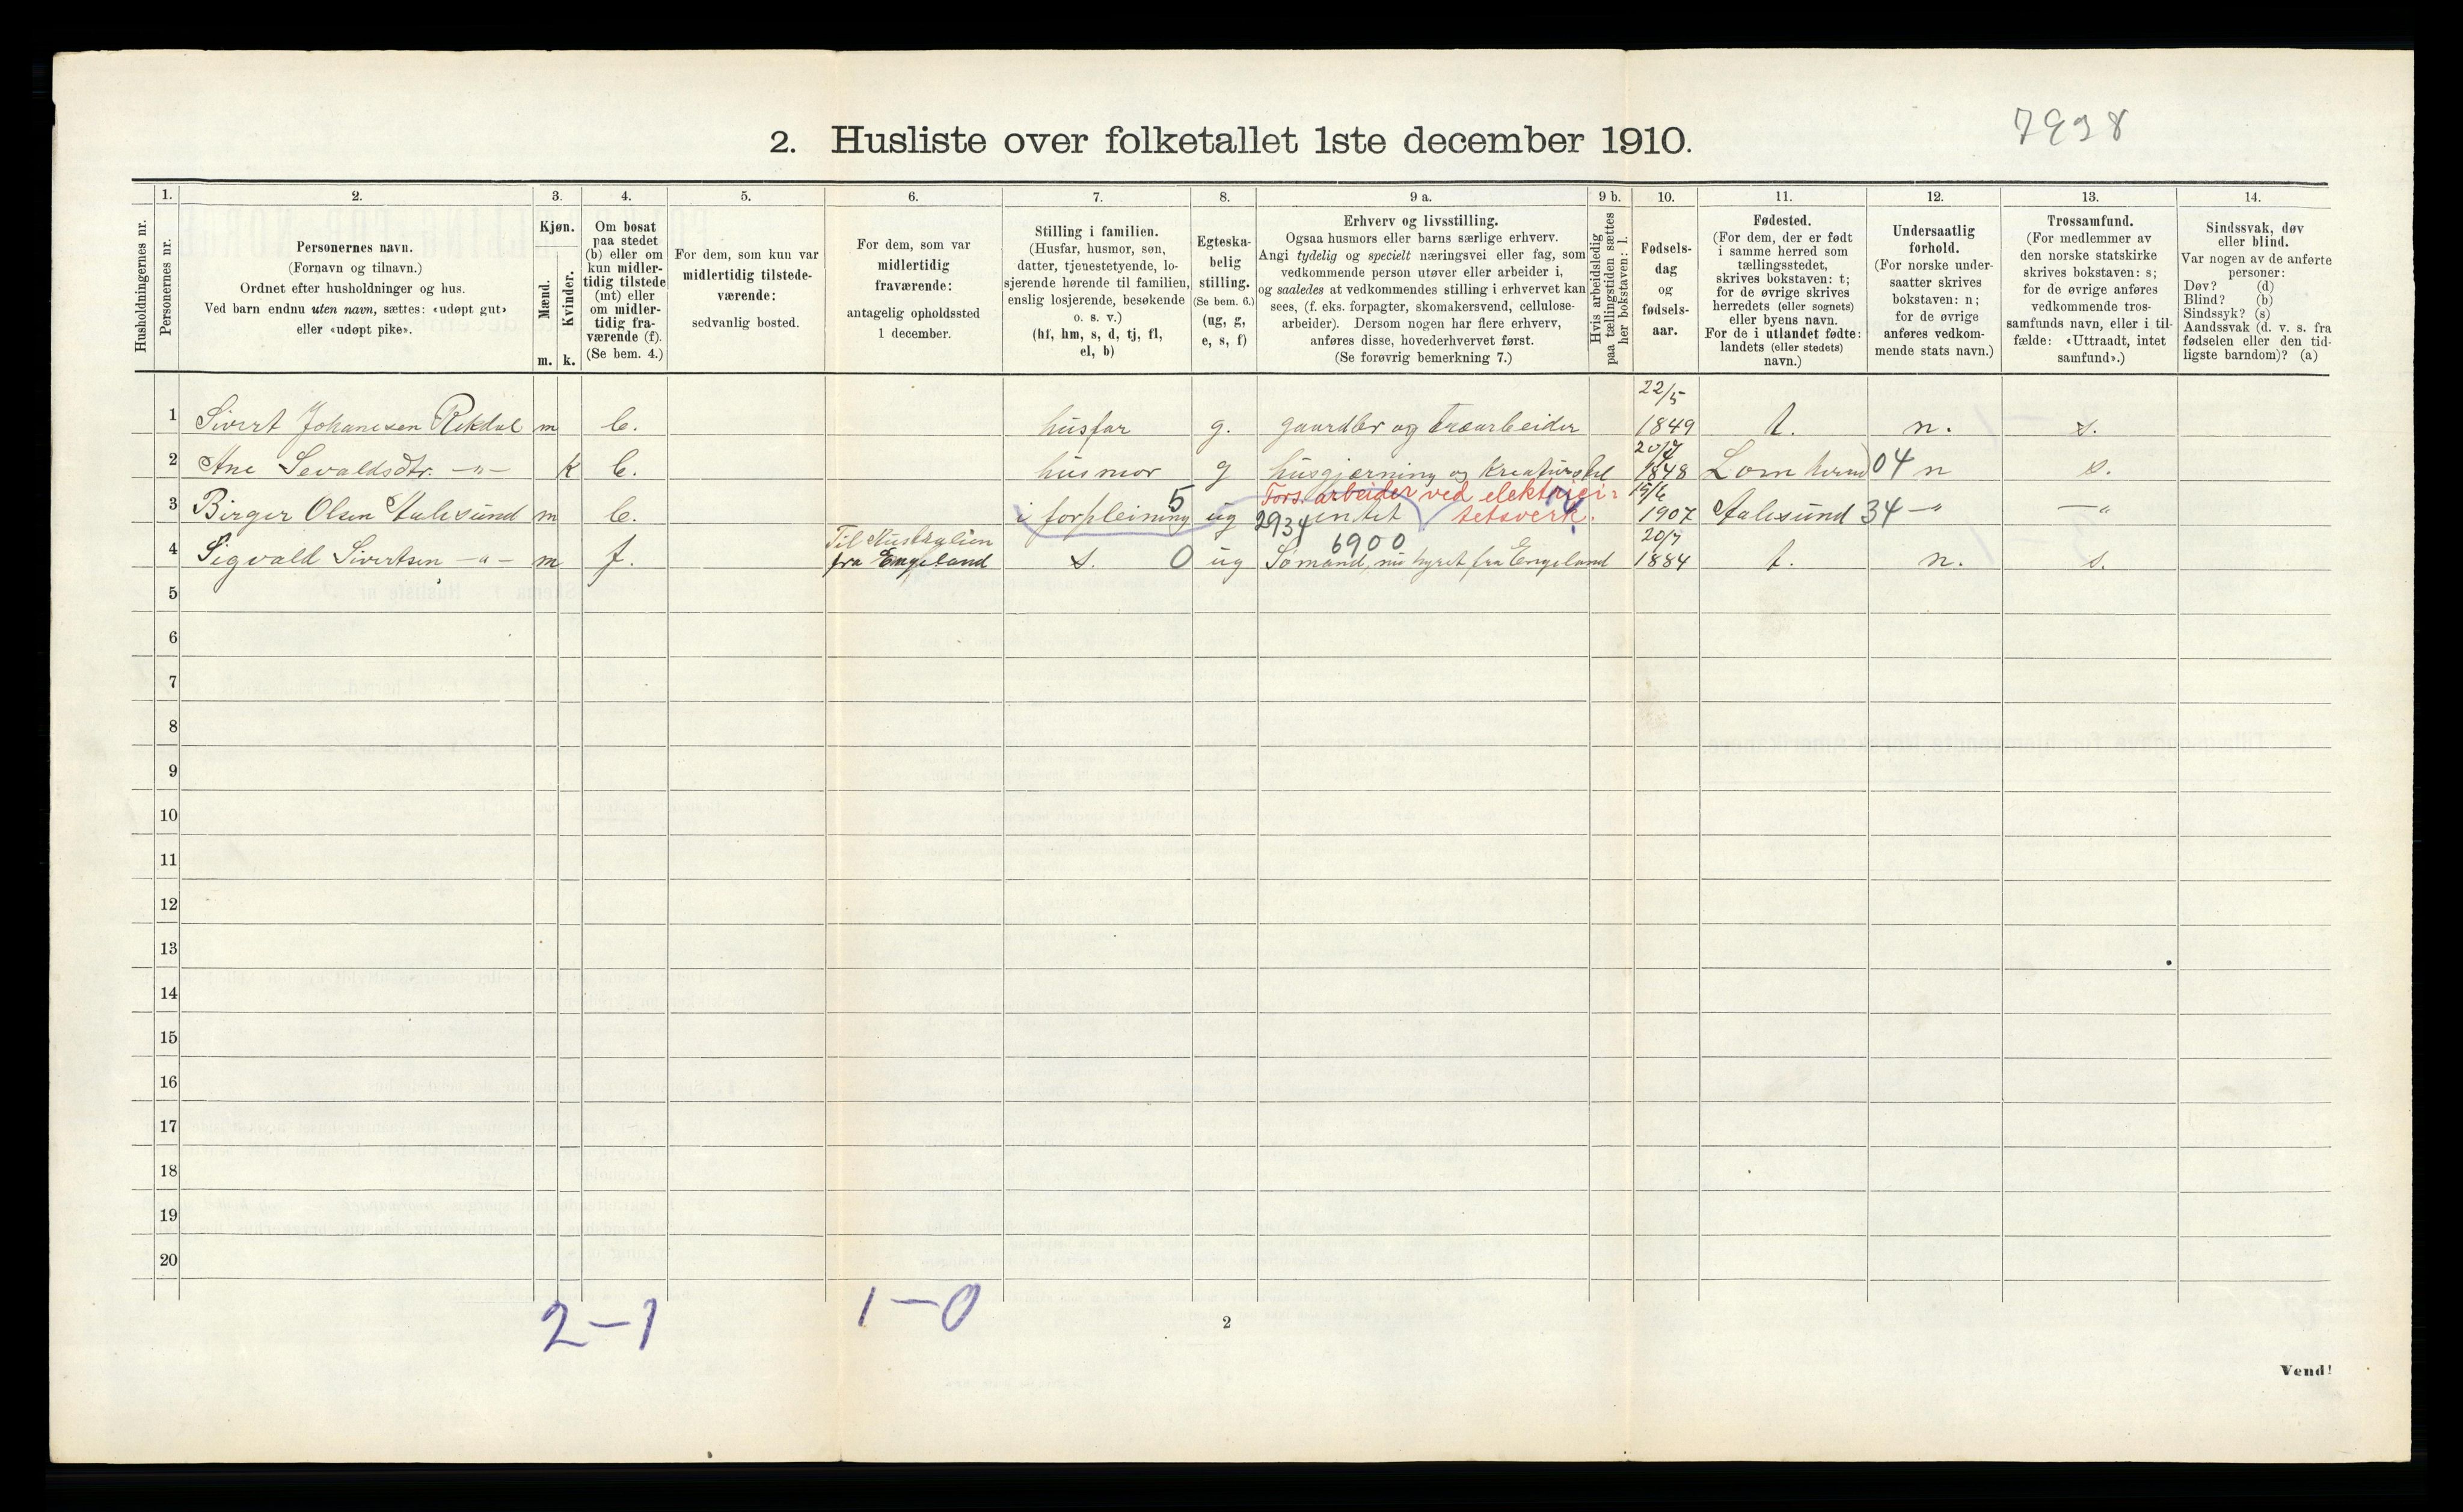 7938
2. Husliste over folketallet 1ste december 1910.
Husholdningernes nr.
1.
Personernes nr.
2.
Personernes navn.
(Fornavn og tilnavn.)
Ordnet efter husholdninger og hus.
Ved barn endnu uten navn, sættes: «udøpt gut»
eller «udøpt pike».
3.
Kjøn.
Mænd.
Kvinder.
m. k.
4.
Om bosat
paa stedet
(b) eller om
kun midler-
tidig tilstede
(mt) eller
om midler-
tidig fra-
værende (f).
(Se bem. 4.)
5.
For dem, som kun var
midlertidig tilstede-
værende:
sedvanlig bosted.
6.
For dem, som var
midlertidig
fraværende:
antagelig opholdssted
1 december.
7.
Stilling i familien.
(Husfar, husmor, søn,
datter, tjenestetyende, lo-
sjerende hørende til familien,
enslig losjerende, besøkende
o. s. v.)
(hf, hm, s, d, tj, fl,
el, b)
8.
Egteska-
belig
stilling.
(Se bem. 6.)
(ug, g,
e, s, f)
9 a.
Erhverv og livsstilling.
Ogsaa husmors eller barns særlige erhverv.
Angi tydelig og specielt næringsvei eller fag, som
vedkommende person utøver eller arbeider i,
og saaledes at vedkommendes stilling i erhvervet kan
sees, (f. eks. forpagter, skomakersvend, cellulose-
arbeider). Dersom nogen har flere erhverv,
anføres disse, hovederhvervet først.
(Se forøvrig bemerkning 7.)
9 b.
Hvis arbeidsledig
paa tællingstiden sættes
her bokstaven: l.
10.
Fødsels-
dag
og
fødsels-
aar.
11.
Fødested.
(For dem, der er født
i samme herred som
tællingsstedet,
skrives bokstaven: t;
for de øvrige skrives
herredets (eller sognets)
eller byens navn.
For de i utlandet fødte:
landets (eller stedets)
navn.)
12.
Undersaatlig
forhold.
(For norske under-
saatter skrives
bokstaven: n;
for de øvrige
anføres vedkom-
mende stats navn.)
13.
Trossamfund.
(For medlemmer av
den norske statskirke
skrives bokstaven: s;
for de øvrige anføres
vedkommende tros-
samfunds navn, eller i til-
fælde: «Uttraadt, intet
samfund».)
14.
Sindssvak, døv
eller blind.
Var nogen av de anførte
personer:
Døv? (d)
Blind? (b)
Sindssyk? (s)
Aandssvak (d. v. s. fra
fødselen eller den tid-
ligste barndom)? (a)
22/5
1 Sivert Johanesen Rekdal m b. husfar g. gaardbr og træarbeider 1849 t. n. s.
2 Ane Sevaldsdtr. -"- k b. husmor g husgjerning og kreaturstel 1848 Lom 04 n s.
Fors. arbeider ved elektrici- 15/6
3 Birger Olsen Aalesund m b. i forpleining 5 ug 2934 intet tetsverk. 1907 Aalesund 34 -"- -"-
Til Australien 6900 20/7
4 Sigvald Sivertsen -"- m f. fra Engeland s. 0 ug Sømand, nu hyret fra Engeland 1884 t. n. s.
5
6
7
8
9
10
11
12
13
14
15
16
17
18
19
20
2-1 1-0
2
Vend!